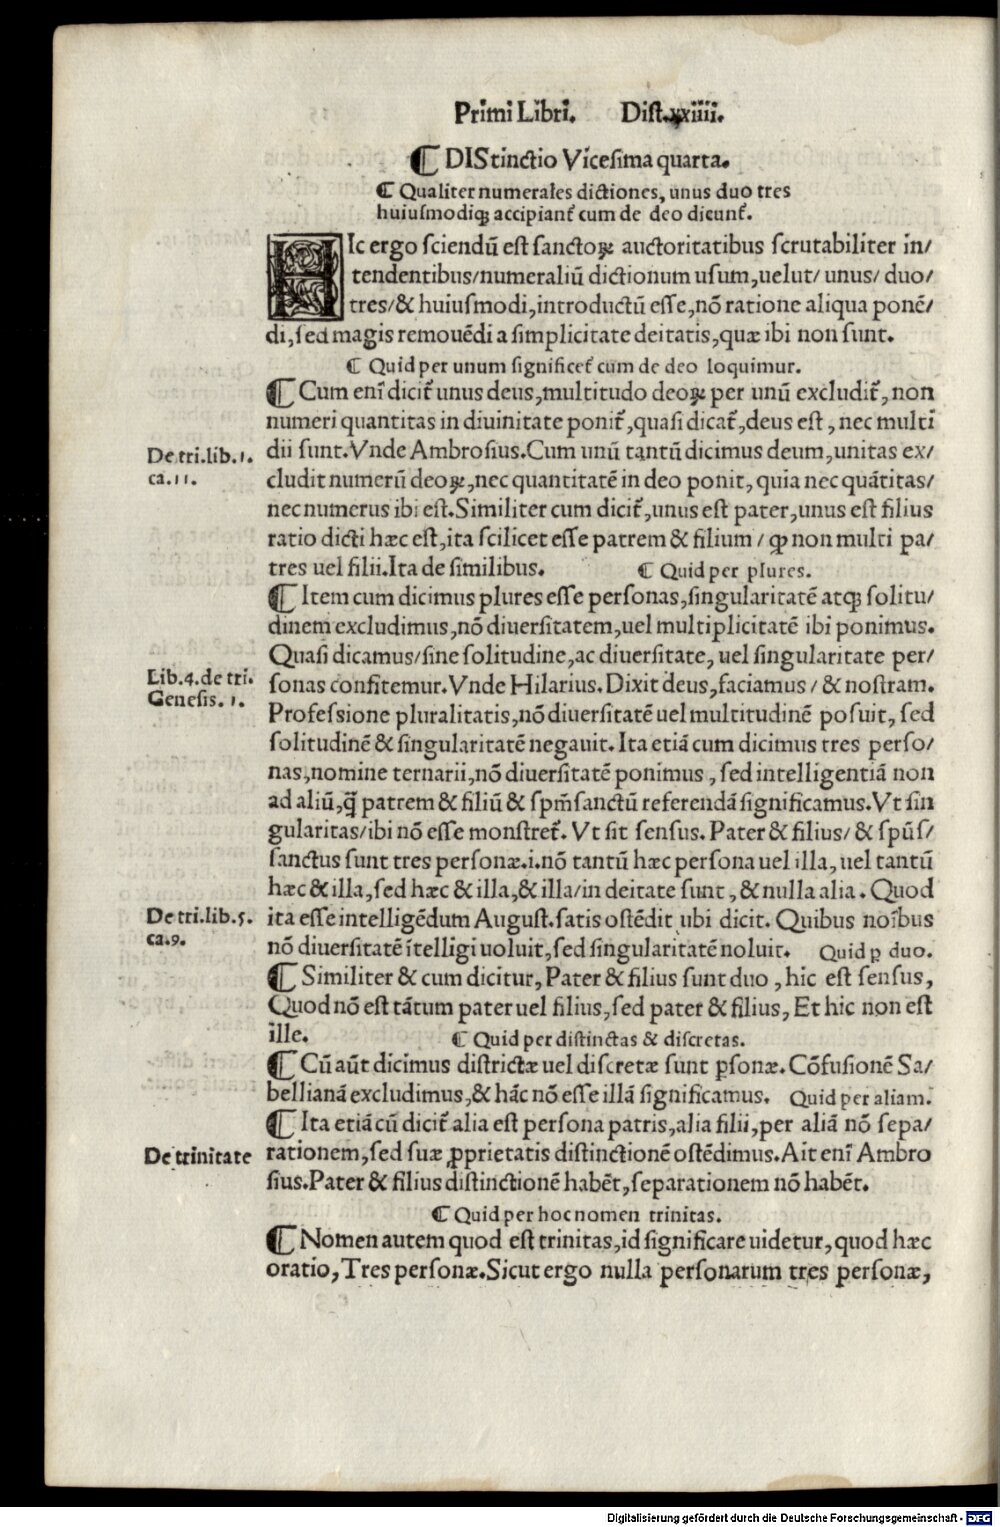 Primi Libri. Dist.xxiiii.
¶ DIStinctio Vicesima quarta.
¶ Qualiter numerales dictiones, unus duo tres
huiusmodiqꝫ accipiant᷑ cum de deo dicunt᷑.
HIc ergo sciendū est sanctoꝝ auctoritatibus scrutabiliter in/
tendentibus/numeraliū dictionum usum,uelut/ unus/ duo/
tres/& huiusmodi,introductū esse,nō ratione aliqua ponē/
di,sed magis remouēdi a simplicitate deitatis,quæ ibi non sunt.
¶ Quid per unum significet᷑ cum de deo loquimur.
¶ Cum enī dicit᷑ unus deus,multitudo deoꝝ per unū excludit᷑,non
numeri quantitas in diuinitate ponit᷑,quasi dicat᷑,deus est, nec multi
De tri.lib.1.
ca.11.
dii sunt.Vnde Ambrosius.Cum unū tantū dicimus deum,unitas ex/
cludit numerū deoꝝ,nec quantitatē in deo ponit, quia nec quātitas/
nec numerus ibi est.Similiter cum dicit᷑,unus est pater,unus est filius
ratio dicti hæc est,ita scilicet esse patrem & filium / ꝙ non multi pa/
tres uel filii.Ita de similibus. ¶ Quid per plures.
¶ Item cum dicimus plures esse personas,singularitatē atqꝫ solitu/
dinem excludimus,nō diuersitatem,uel multiplicitatē ibi ponimus.
Quasi dicamus/sine solitudine,ac diuersitate, uel singularitate per/
Lib.4.de tri.
Genesis. 1.
sonas confitemur.Vnde Hilarius.Dixit deus,faciamus / & nostram.
Professione pluralitatis,nō diuersitatē uel multitudinē posuit, sed
solitudinē & singularitatē negauit.Ita etiā cum dicimus tres perso/
nas,nomine ternarii,nō diuersitatē ponimus , sed intelligentiā non
ad aliū,q̄ patrem & filiū & spm̄sanctū referendā significamus.Vt sin
gularitas/ibi nō esse monstret᷑. Vt sit sensus. Pater & filius/ & spūs/
sanctus sunt tres personæ.i.nō tantū hæc persona uel illa, uel tantū
hæc & illa,sed hæc & illa,& illa/in deitate sunt , & nulla alia . Quod
De tri.lib.5.
ca.9.
ita esse intelligēdum August.satis ostēdit ubi dicit. Quibus noībus
nō diuersitatē ītelligi uoluit,sed singularitatē noluit. Quid ꝑ duo.
¶ Similiter & cum dicitur, Pater & filius sunt duo , hic est sensus,
Quod nō est tātum pater uel filius,sed pater & filius, Et hic non est
ille. ¶ Quid per distinctas & discretas.
¶ Cū aūt dicimus districtæ uel discretæ sunt ꝑsonæ. Cōfusionē Sa/
bellianā excludimus,& hāc nō esse illā significamus. Quid per aliam.
¶ Ita etiā cū dicit᷑ alia est persona patris,alia filii,per aliā nō sepa/
De trinitate
rationem,sed suæ ꝓprietatis distinctionē ostēdimus.Ait enī Ambro
sius.Pater & filius distinctionē habēt,separationem nō habēt.
¶ Quid per hoc nomen trinitas.
¶ Nomen autem quod est trinitas,id significare uidetur, quod hæc
oratio, Tres personæ.Sicut ergo nulla personarum tres personæ,
Digitalisierung gefördert durch die Deutsche Forschungsgemeinschaft - DFG